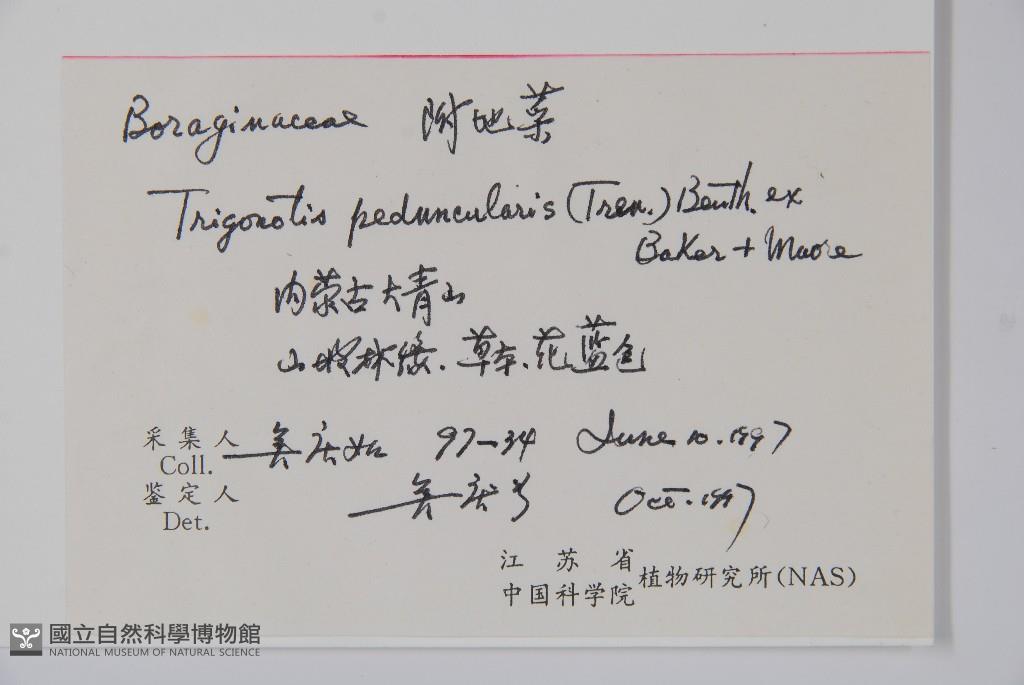 Boraginaceae 附地菜
Trigonotis peduncularis (Trev.) Benth. ex
Baker + Moore
内蒙古大青山
山坡林缘.草本.花蓝色
采集人 Coll. 97-34 June 10.1997
鉴定人 Det. Oct.1997
江苏省
中国科学院 植物研究所(NAS)
國立自然科學博物館
NATIONAL MUSEUM OF NATURAL SCIENCE